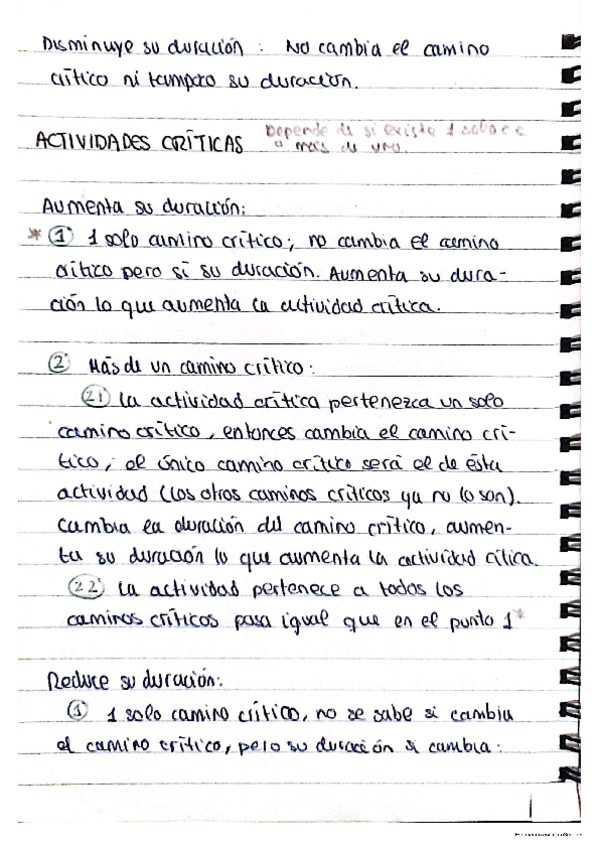 Disminuye su duración : No cambia el camino
crítico ni tampoco su duración.
ACTIVIDADES CRÍTICAS Depende de si existe 1 solo c.c
o más de uno.
Aumenta su duración:
* ① 1 solo camino crítico; no cambia el camino
crítico pero sí su duración. Aumenta su dura-
ción lo que aumenta la actividad crítica.
② Más de un camino crítico:
2.1 La actividad crítica pertenezca un solo
camino crítico, entonces cambia el camino crí-
tico, el único camino crítico será el de ésta
actividad (los otros caminos críticos ya no lo son).
Cambia la duración del camino crítico, aumen-
ta su duración lo que aumenta la actividad cítica.
2.2 La actividad pertenece a todos los
caminos críticos pasa igual que en el punto 1*
Reduce su duración:
① 1 solo camino crítico, no se sabe si cambia
el camino crítico, pero su duración si cambia: